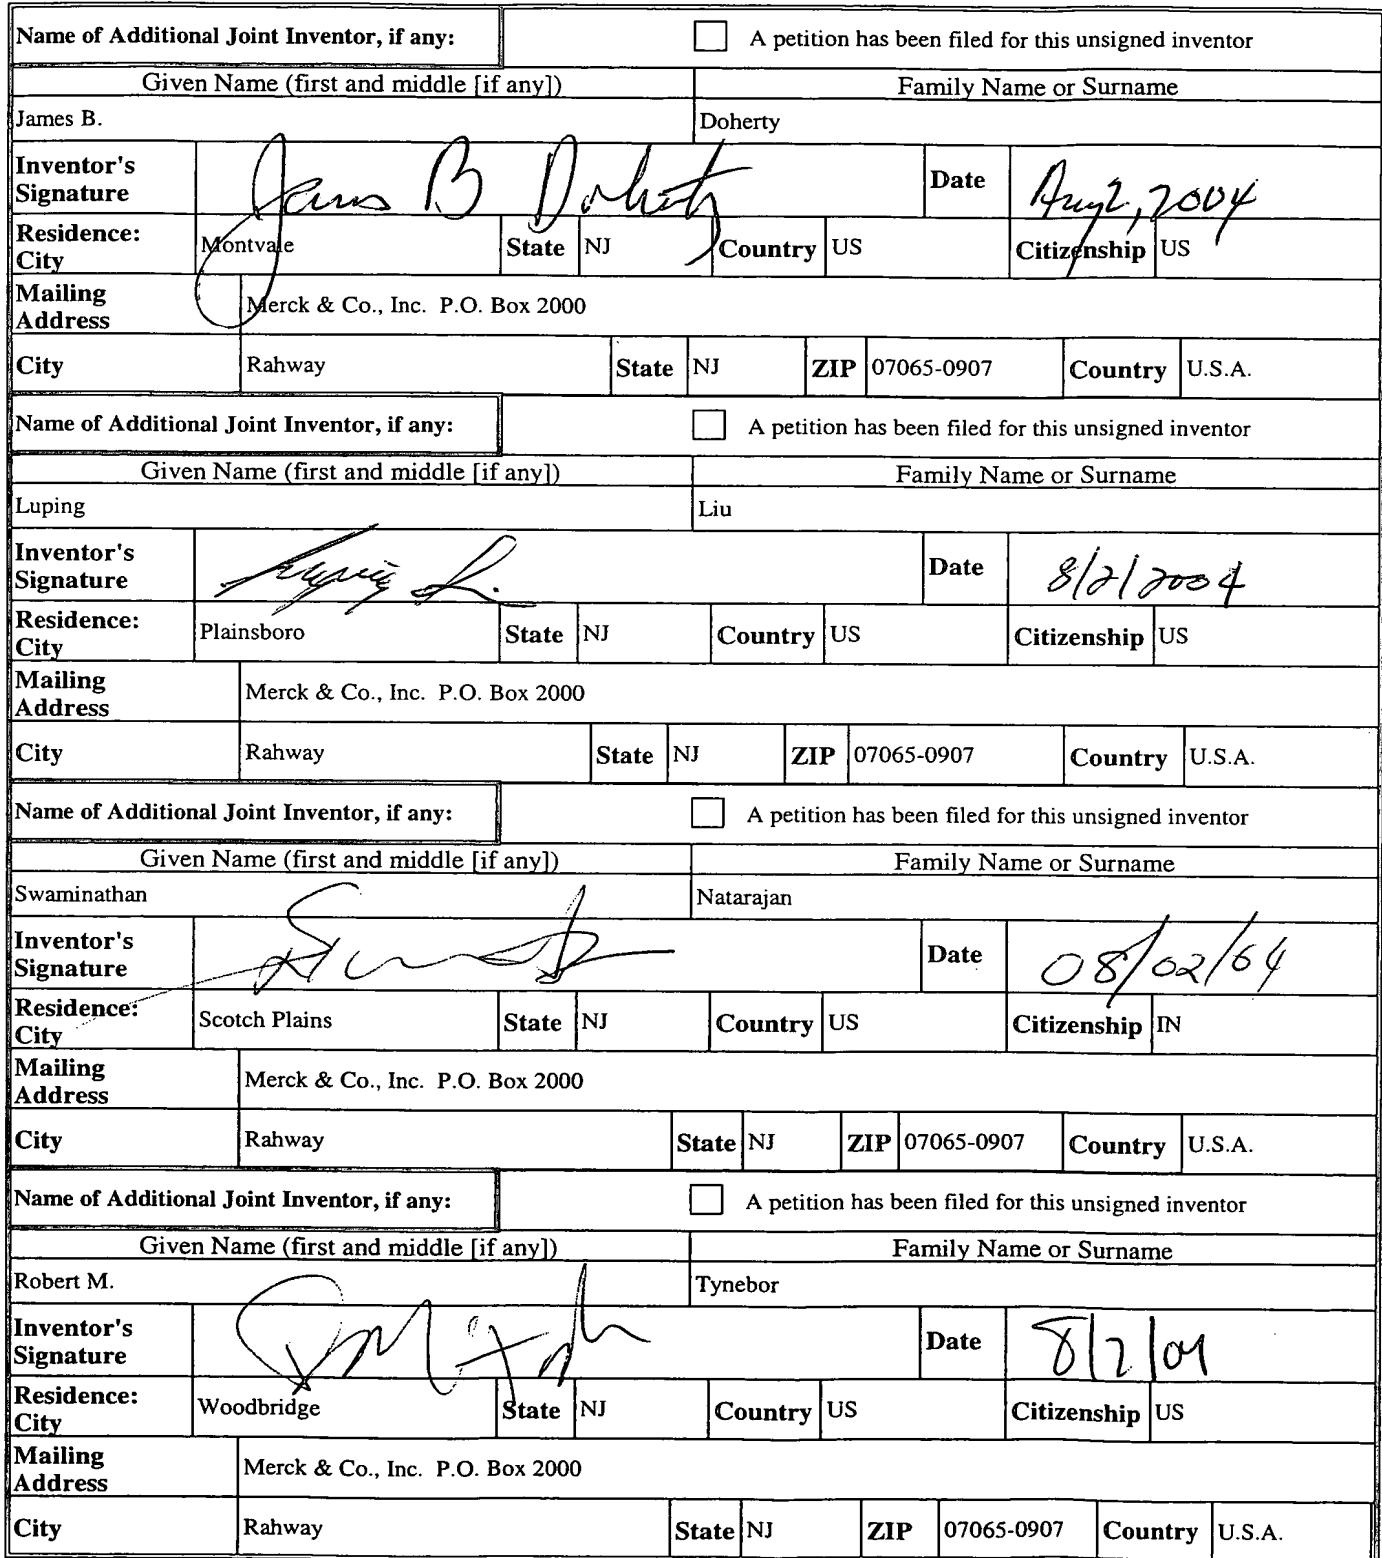 Name of Additional Joint Inventor, if any: A petition has been filed for this unsigned inventor
Given Name (first and middle [if any]) Family Name or Surname
James B. Doherty
Inventor's Signature James B Doherty Date Aug 2, 2004
Residence: City Montvale State NJ Country US Citizenship US
Mailing Address Merck & Co., Inc. P.O. Box 2000
City Rahway State NJ ZIP 07065-0907 Country U.S.A.
Name of Additional Joint Inventor, if any: A petition has been filed for this unsigned inventor
Given Name (first and middle [if any]) Family Name or Surname
Luping Liu
Inventor's Signature Date 8/2/2004
Residence: City Plainsboro State NJ Country US Citizenship US
Mailing Address Merck & Co., Inc. P.O. Box 2000
City Rahway State NJ ZIP 07065-0907 Country U.S.A.
Name of Additional Joint Inventor, if any: A petition has been filed for this unsigned inventor
Given Name (first and middle [if any]) Family Name or Surname
Swaminathan Natarajan
Inventor's Signature Date 08/02/04
Residence: City Scotch Plains State NJ Country US Citizenship IN
Mailing Address Merck & Co., Inc. P.O. Box 2000
City Rahway State NJ ZIP 07065-0907 Country U.S.A.
Name of Additional Joint Inventor, if any: A petition has been filed for this unsigned inventor
Given Name (first and middle [if any]) Family Name or Surname
Robert M. Tynebor
Inventor's Signature Date 8/2/04
Residence: City Woodbridge State NJ Country US Citizenship US
Mailing Address Merck & Co., Inc. P.O. Box 2000
City Rahway State NJ ZIP 07065-0907 Country U.S.A.